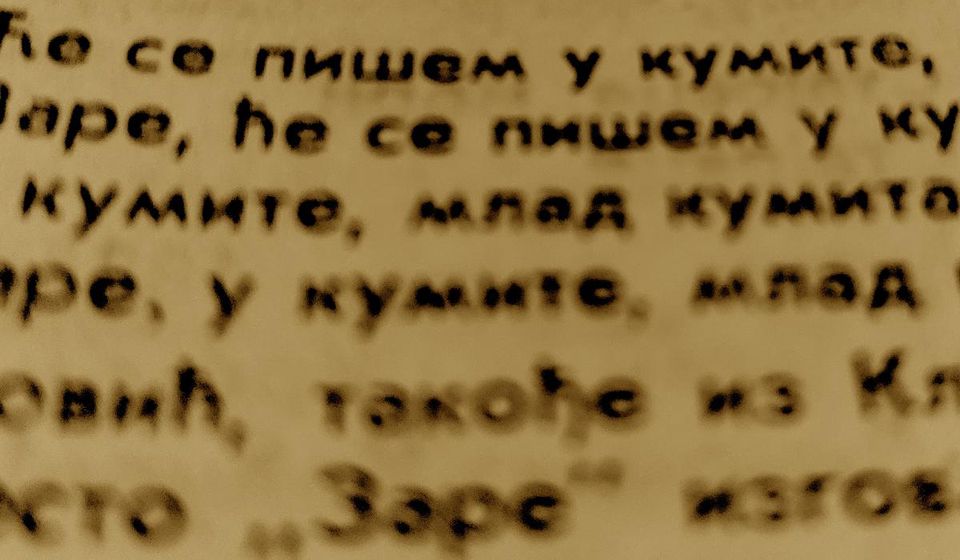 ће се пишем у кумите,
Царе, ће се пишем у ку
кумите, млад кумита
аре, у кумите, млад
овић, такође из Кл
есто „Заре“ изгов